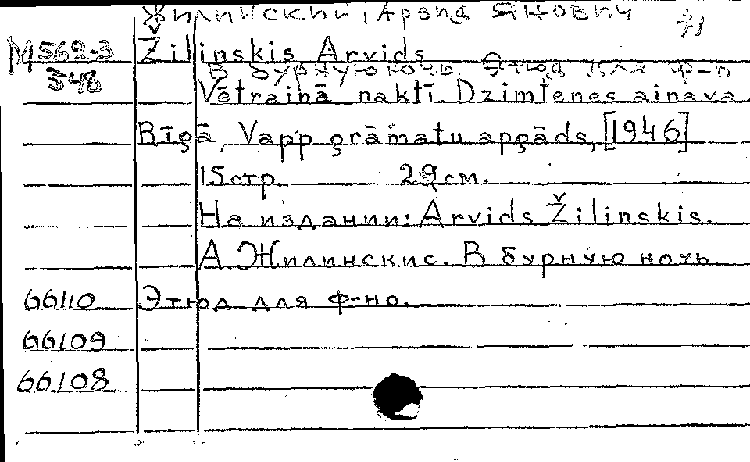 Жилинский, Арвид Янович 71
М562-3 Žilinskis Arvids
348 В бурную ночь. Этюд для ф-п
Vētrainā naktī. Dzimtenes ainava
Rīgā, Vapp grāmatu apgāds, [1946]
15 стр. 29 см.
На издании: Arvids Žilinskis.
А. Жилинскис. В бурную ночь
66110 Этюд для ф-но.
66109
66108